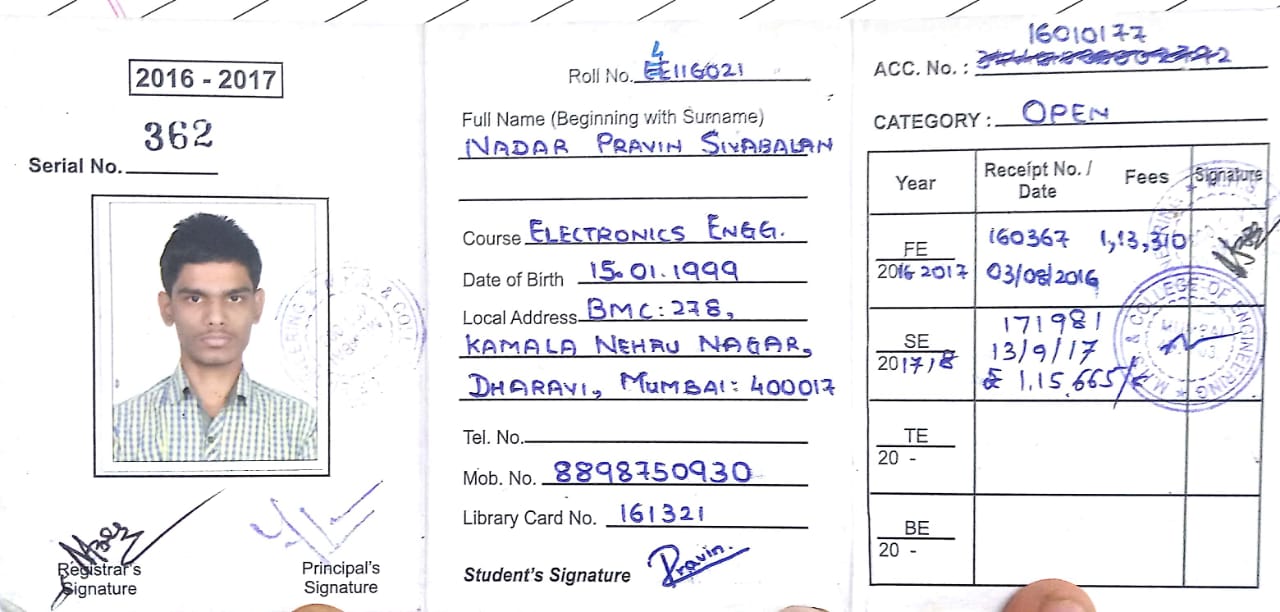 2016 - 2017
362
Serial No.
Registrar's
Signature
Principal's
Signature
4
Roll No. EE116021
Full Name (Beginning with Surname)
NADAR PRAVIN SIVABALAN
Course ELECTRONICS ENGG.
Date of Birth 15.01.1999
Local Address BMC: 278,
KAMALA NEHRU NAGAR,
DHARAVI, MUMBAI: 400017
Tel. No.
Mob. No. 8898750930
Library Card No. 161321
Student's Signature Pravin.
16010177
ACC. No. :
CATEGORY : OPEN
Year Receipt No. / Date Fees Signature
FE 160367 1,13,310
2016 2017 03/08/2016
SE 171981
2017/8 13/9/17
1,15,665/-
& COLLEGE OF ENGINEERING
TE
20 -
BE
20 -